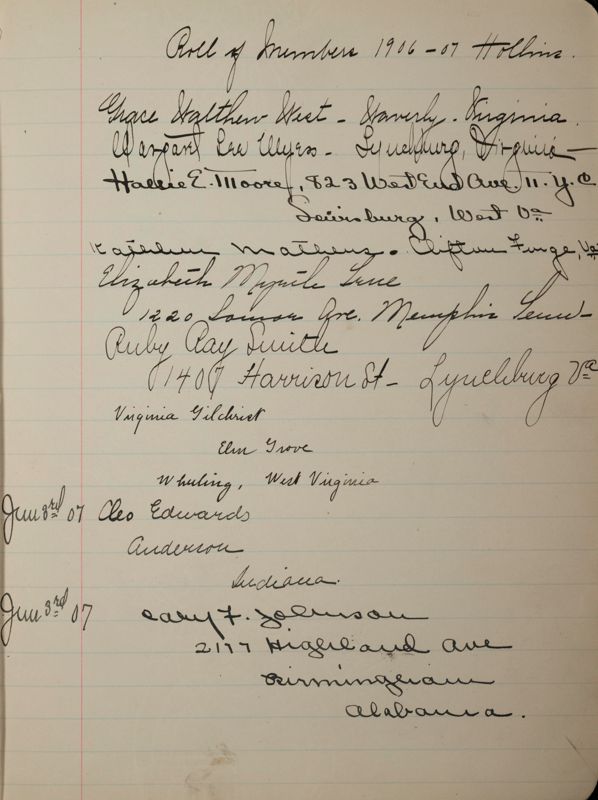 Roll of Members 1906-07 Hollins.
Grace Walthew West - Waverly - Virginia.
Margaret Lee Myers - Lynchburg, Virginia -
Hallie E. Moore, 823 West End Ave. N. Y. C
Lewisburg, West Va
Kathleen Mathews. Clifton Forge, Va
Elizabeth Myrtle
1220 Lamar Ave. Memphis Tenn-
Ruby Ray Smith
1407 Harrison St - Lynchburg Va
Virginia Gilchrist
Elm Grove
Wheeling, West Virginia
Jun 3rd 07 Cleo Edwards
Anderson
Indiana.
Jun 3rd 07 Cary F. Johnson
2177 Highland Ave
Birmingham
Alabama.